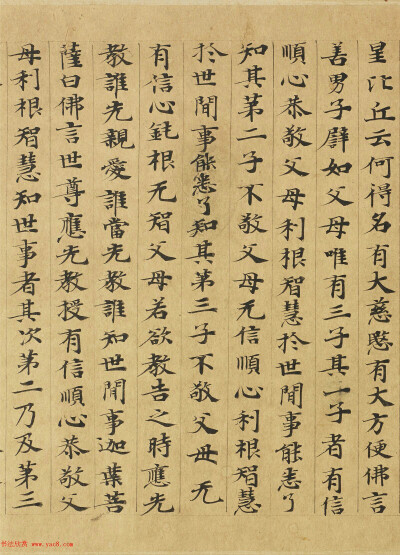 星比丘云何得名有大慈愍有大方便佛言
善男子辟如父母唯有三子其一子者有信
順心恭敬父母利根智慧於世間事能悉了
知其第二子不敬父母无信順心利根智慧
於世間事能悉了知其第三子不敬父母无
有信心鈍根无智父母若欲教告之時應先
教誰先親愛誰當先教誰知世間事迦葉菩
薩白佛言世尊應先教授有信順心恭敬父
母利根智慧知世事者其次第二乃及第三
书法欣赏 www.yac8.com